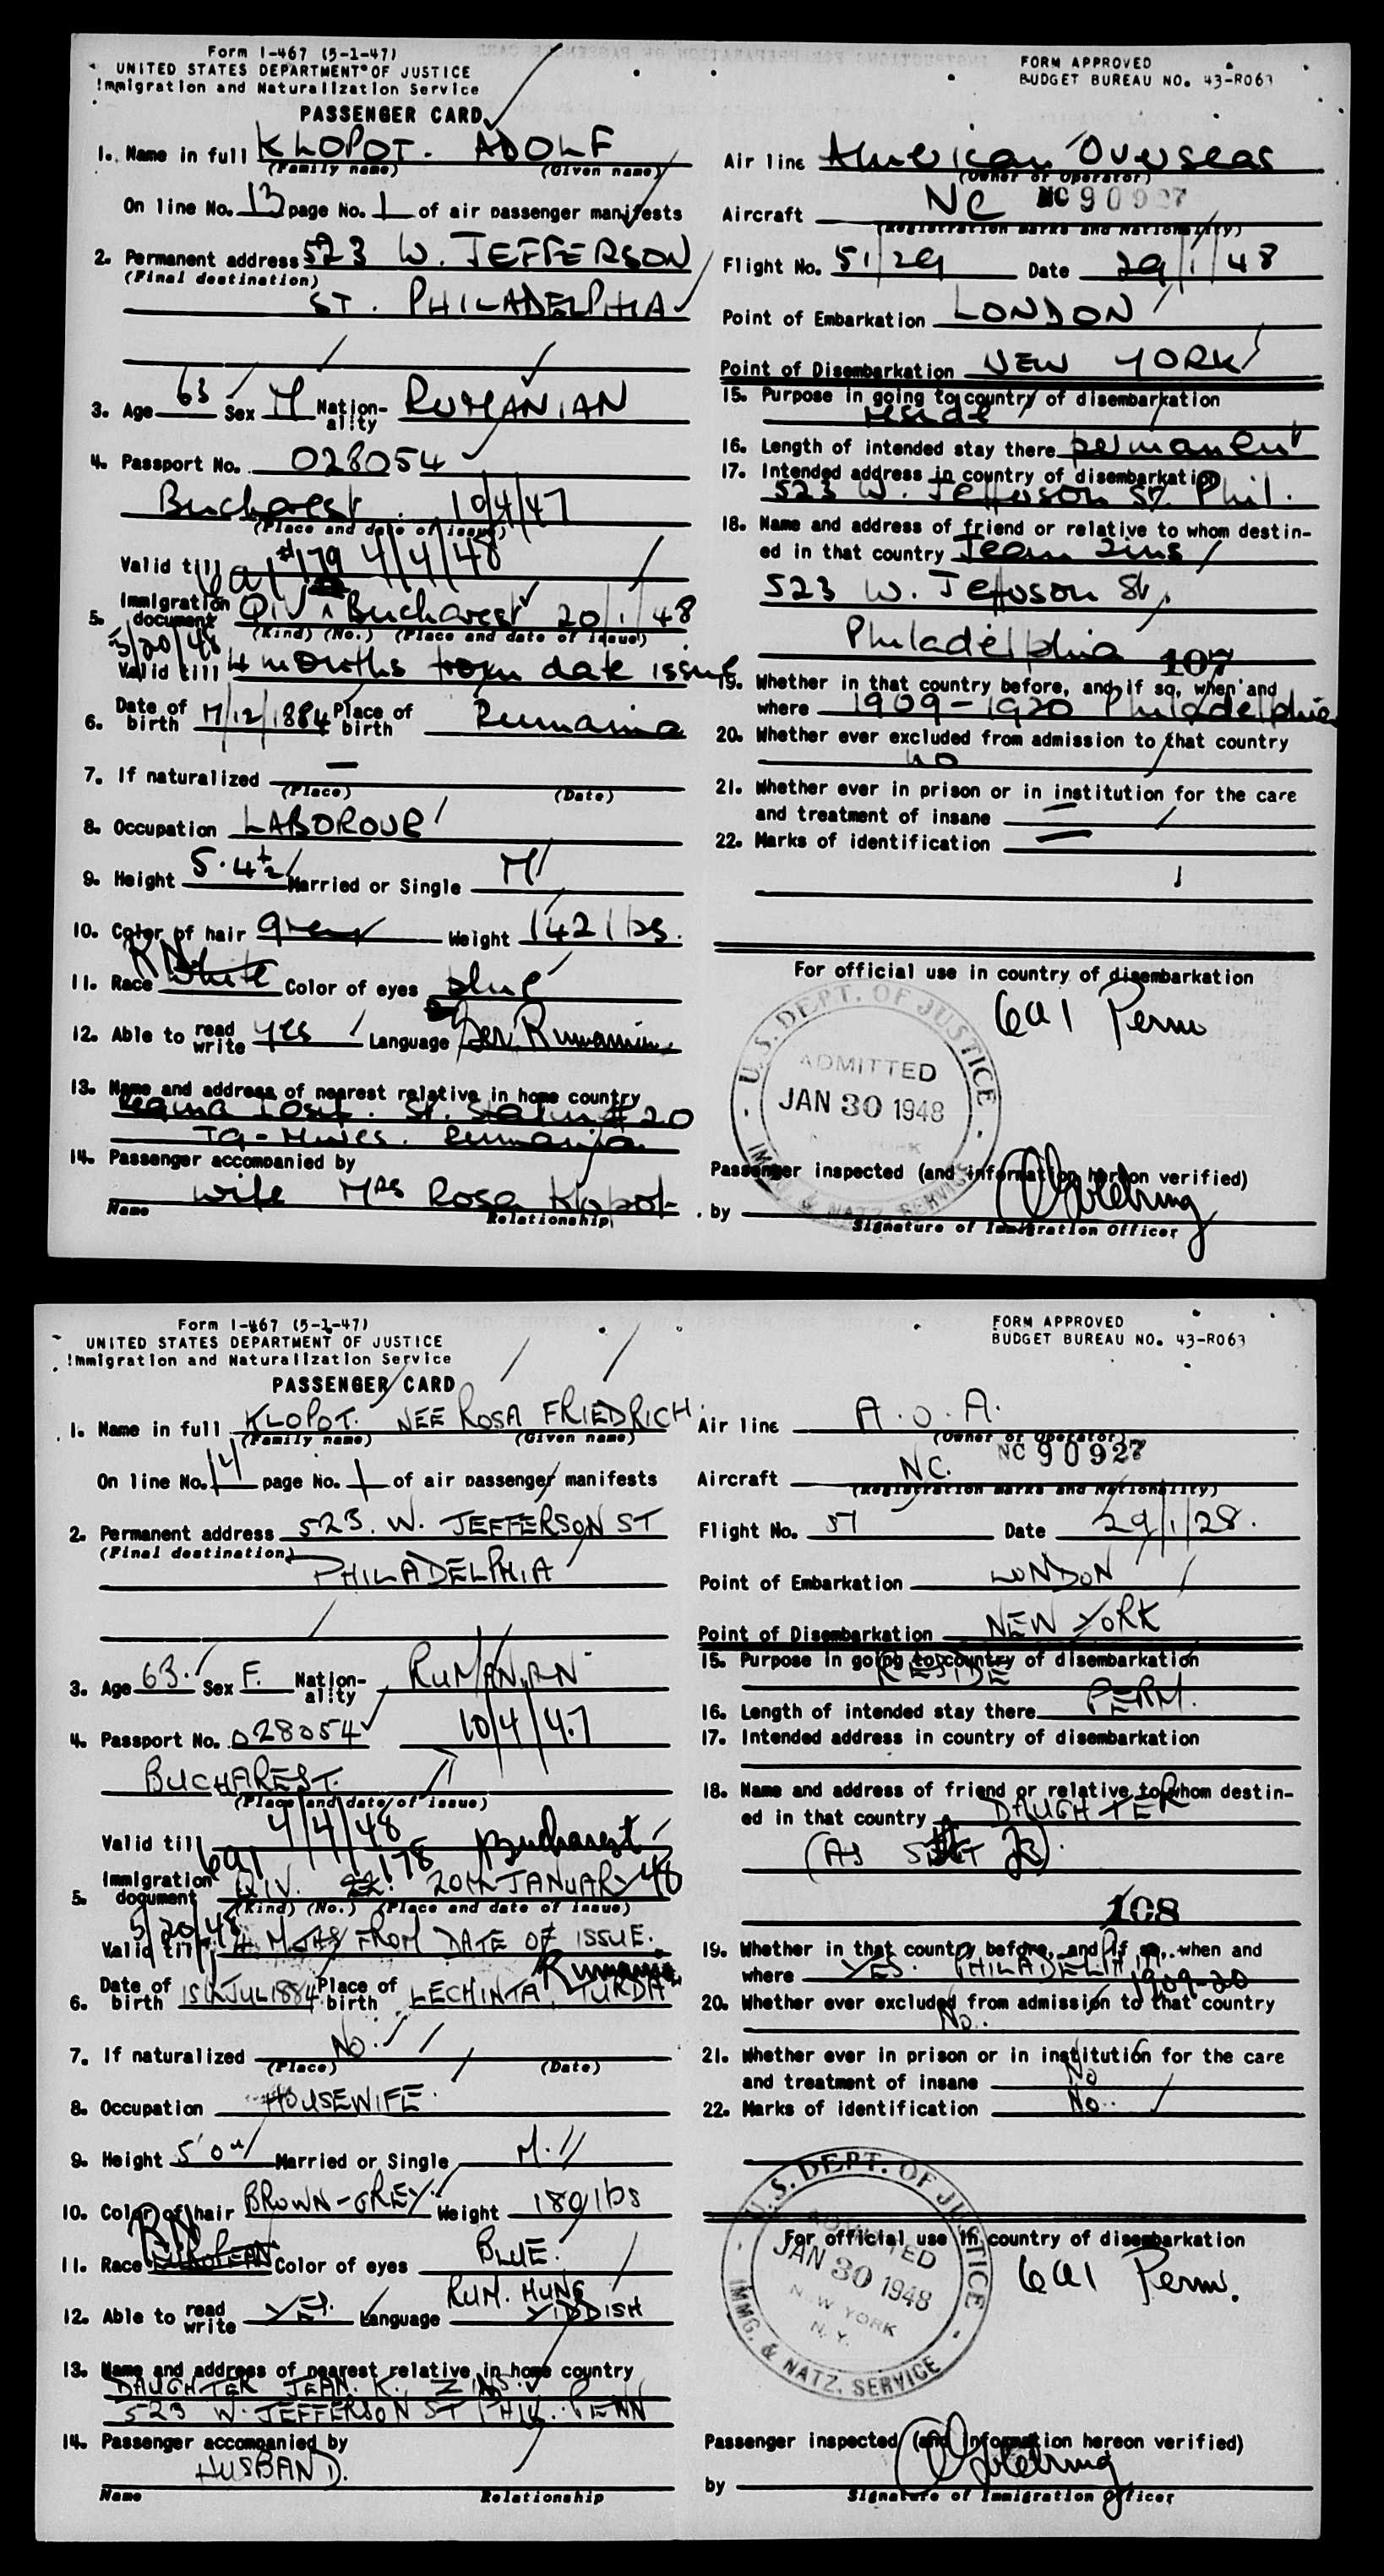 Form I-467 (5-1-47)
UNITED STATES DEPARTMENT OF JUSTICE
Immigration and Naturalization Service
PASSENGER CARD
1. Name in full KLOPOT. ADOLF
(Family name) (Given name)
On line No. 13 page No. 1 of air passenger manifests
2. Permanent address 523 W. JEFFERSON
(Final destination)
ST. PHILADELPHIA
3. Age 63 Sex M Nation-ality RUMANIAN
4. Passport No. 028054
Bucharest 10/4/47
(Place and date of issue)
Valid till 4/4/48
6a1 #179
5. Immigration document QIV Bucharest 20/1/48
(Kind) (No.) (Place and date of issue)
5/20/48
Valid till 4 months from date issue
6. Date of birth 17/12/1884 Place of birth Rumania
7. If naturalized —
(Place) (Date)
8. Occupation LABOROUR
9. Height 5.4½ Married or Single M
10. Color of hair grey Weight 142 lbs.
11. Race White Color of eyes blue
12. Able to read write yes Language Rumanian
13. Name and address of nearest relative in home country
Regina Iosif. St. Stalin # 20
Tg-Mures. Rumania
14. Passenger accompanied by
wife Mrs Rosa Klopot
Name Relationship
FORM APPROVED
BUDGET BUREAU NO. 43-R063
Air line American Overseas
(Owner or Operator)
Aircraft NC NC 90927
(Registration marks and Nationality)
Flight No. 51/29 Date 29/1/48
Point of Embarkation LONDON
Point of Disembarkation NEW YORK
15. Purpose in going to country of disembarkation
reside
16. Length of intended stay there permanent
17. Intended address in country of disembarkation
523 W. Jefferson St. Phil.
18. Name and address of friend or relative to whom destin-
ed in that country Jean Zins
523 W. Jefferson St.
Philadelphia 107
19. Whether in that country before, and if so, when and
where 1909-1920 Philadelphia
20. Whether ever excluded from admission to that country
no
21. Whether ever in prison or in institution for the care
and treatment of insane —
22. Marks of identification —
For official use in country of disembarkation
6a1 Perm
U.S. DEPT. OF JUSTICE
ADMITTED
JAN 30 1948
NEW YORK
IMMG. & NATZ. SERVICE
Passenger inspected (and information hereon verified)
by
Signature of Immigration Officer
Form I-467 (5-1-47)
UNITED STATES DEPARTMENT OF JUSTICE
Immigration and Naturalization Service
PASSENGER CARD
1. Name in full KLOPOT. NEE ROSA FRIEDRICH.
(Family name) (Given name)
On line No. 14 page No. 1 of air passenger manifests
2. Permanent address 523. W. JEFFERSON ST
(Final destination)
PHILADELPHIA
3. Age 63. Sex F. Nation-ality RUMANIAN
4. Passport No. 028054 10/4/47
BUCHAREST.
(Place and date of issue)
Valid till 4/4/48
6a1 178 Bucharest
5. Immigration document QIV. 20th JANUARY 48
(Kind) (No.) (Place and date of issue)
5/20/48
Valid till 4 MTHS FROM DATE OF ISSUE.
Rumania
6. Date of birth 15th JUL 1884 Place of birth LECHINTA, TURDA
7. If naturalized No.
(Place) (Date)
8. Occupation HOUSEWIFE.
9. Height 5'0" Married or Single M.
10. Color of hair BROWN-GREY. Weight 180 lbs
11. Race EUROPEAN Color of eyes BLUE.
12. Able to read write YES. Language RUM. HUNG YIDDISH
13. Name and address of nearest relative in home country
DAUGHTER JEAN. K. ZINS.
523 W. JEFFERSON ST PHIL. PENN
14. Passenger accompanied by
HUSBAND.
Name Relationship
FORM APPROVED
BUDGET BUREAU NO. 43-R063
Air line A.O.A.
(Owner or Operator)
Aircraft NC. NC 90927
(Registration marks and Nationality)
Flight No. 51 Date 29/1/28.
Point of Embarkation LONDON
Point of Disembarkation NEW YORK
15. Purpose in going to country of disembarkation
RESIDE
16. Length of intended stay there PERM.
17. Intended address in country of disembarkation
18. Name and address of friend or relative to whom destin-
ed in that country DAUGHTER
(AS
108
19. Whether in that country before, and if so, when and
where YES. PHILADELPHIA 1909-20
20. Whether ever excluded from admission to that country
No.
21. Whether ever in prison or in institution for the care
and treatment of insane No
22. Marks of identification No.
U.S. DEPT. OF JUSTICE
ADMITTED
JAN 30 1948
NEW YORK
N.Y.
IMMG. & NATZ. SERVICE
For official use in country of disembarkation
6a1 Perm.
Passenger inspected (and information hereon verified)
by
Signature of Immigration Officer